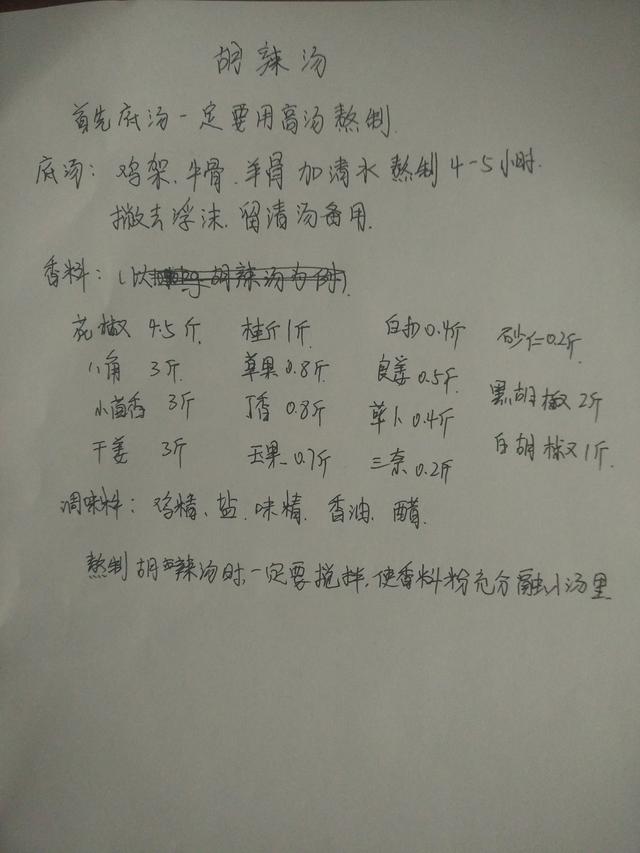 胡辣汤
首先底汤一定要用高汤熬制.
底汤: 鸡架、牛骨、羊骨加清水熬制4-5小时.
撇去浮沫、留清汤备用.
香料:
花椒 4.5斤 桂 1斤 白扣0.4斤 砂仁0.2斤
八角 3斤 草果0.8斤 良姜0.5斤 黑胡椒2斤
小茴香 3斤 丁香0.8斤 草卜0.4斤 白胡椒1斤
干姜 3斤 玉果0.7斤 三奈0.2斤
调味料: 鸡精、盐、味精、香油、醋.
熬制胡辣汤时,一定要搅拌,使香料粉充分融入汤里